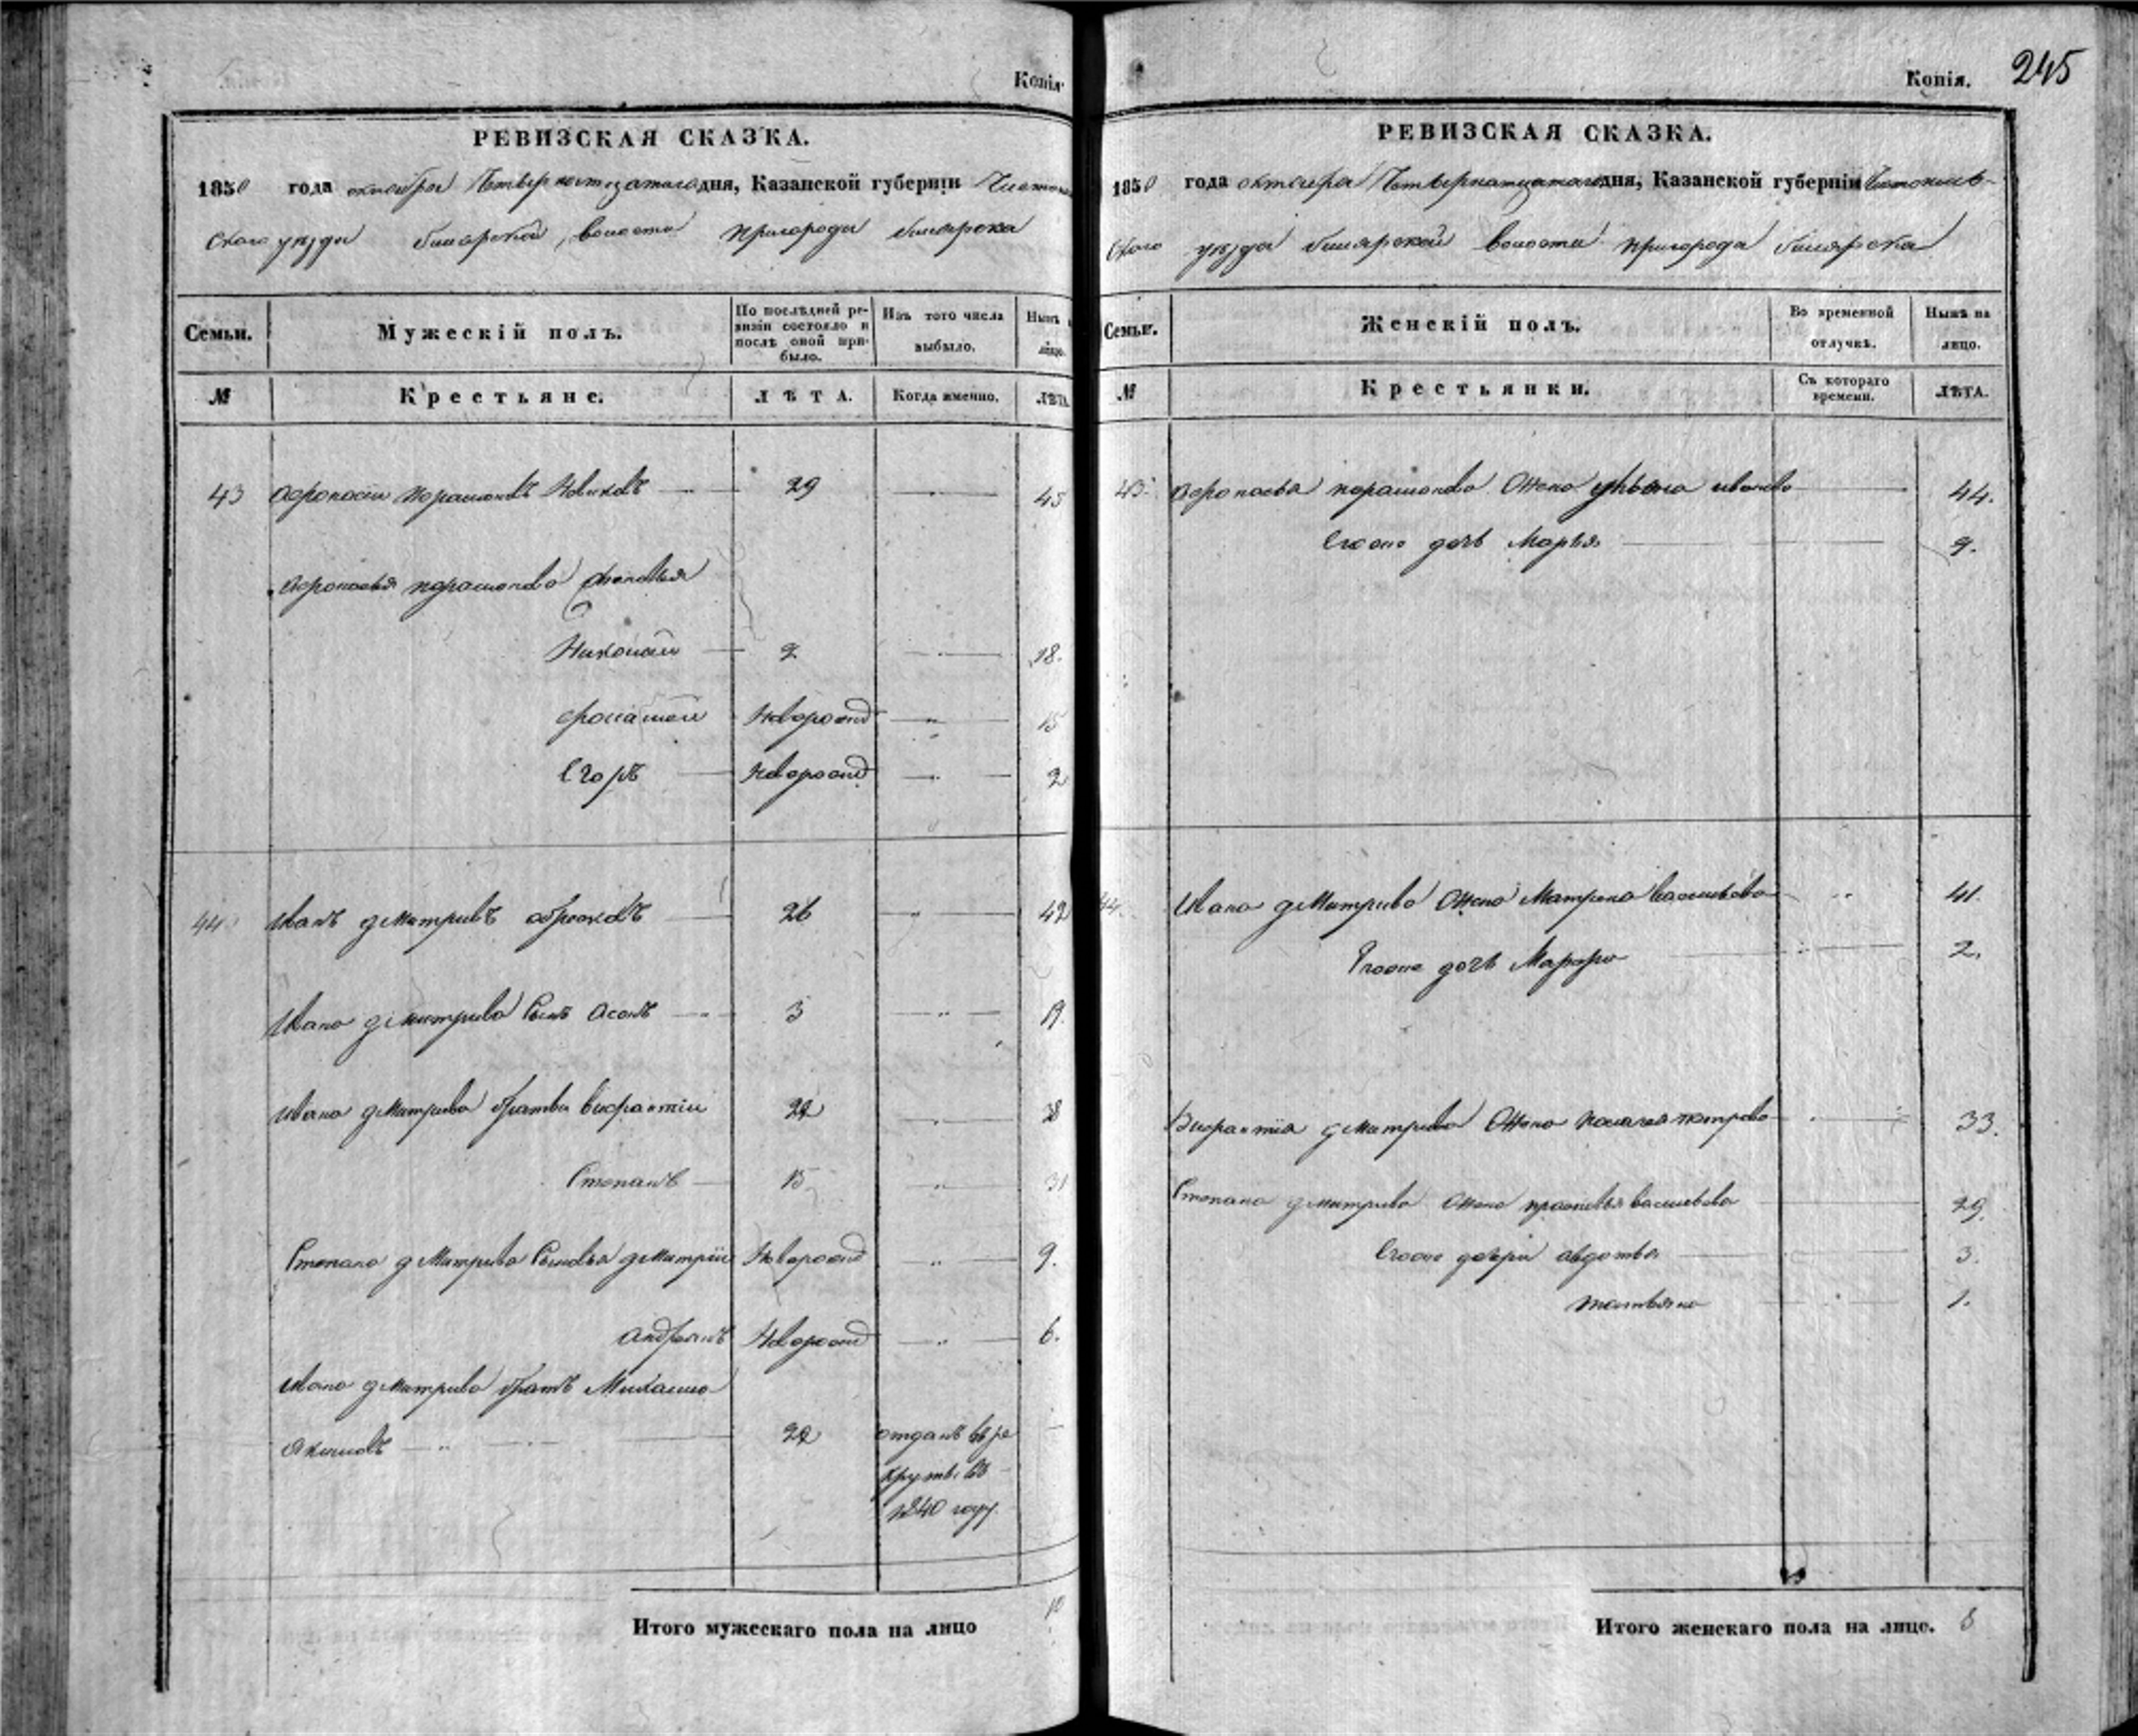 Копія
РЕВИЗСКАЯ СКАЗКА.
1850 года октября Четвернатцатого дня, Казанской губерніи Чистополь
ского уезда билярской волости пригорода билярска
Семьи. Мужескій полъ. По послѣдней ревизіи состояло и послѣ оной прибыло. Изъ того числа выбыло. Нынѣ на лицо.
№ Крестьяне. ЛѢТА. Когда именно. ЛѢТА.
43 Афонасіи 29 — 45
Афонасья сыновья
Николай 2 — 18.
Новорожд — 15
Егоръ Новорожд — 2
44 Иванъ дмитривъ 26 — 42
Ивана дмитрива Сынъ 3 — 19.
Ивана дмитрива братья 22 — 38
Степанъ 15 — 31
Степана дмитрива Сыновья дмитріи Новорожд — 9.
андреянъ Новорожд — 6.
Ивана дмитрива братъ Михаило
Якимовъ — 22 отданъ въ ре —
круты въ
1840 году.
Итого мужескаго пола на лицо 10
Копія. 245
РЕВИЗСКАЯ СКАЗКА.
1850 года октября Четвернатцатого дня, Казанской губерніи Чистополь-
ского уезда билярской волости пригорода билярска
Семьи. Женскій полъ. Во временной отлучкѣ. Нынѣ на лицо.
№ Крестьянки. Съ котораго времени. ЛѢТА.
43 Афонасья жена иванова — 44.
Егоже дочь Марья — 9.
44. Ивана дмитрива жена Матрена василева 41.
Егоже дочь Марфа — 2.
дмитрива жена пелагея петрова 33.
Степана дмитрива жена прасковья василева — 29.
Егоже дочери авдотья — 3.
татьяна — 1.
Итого женскаго пола на лицо. 8